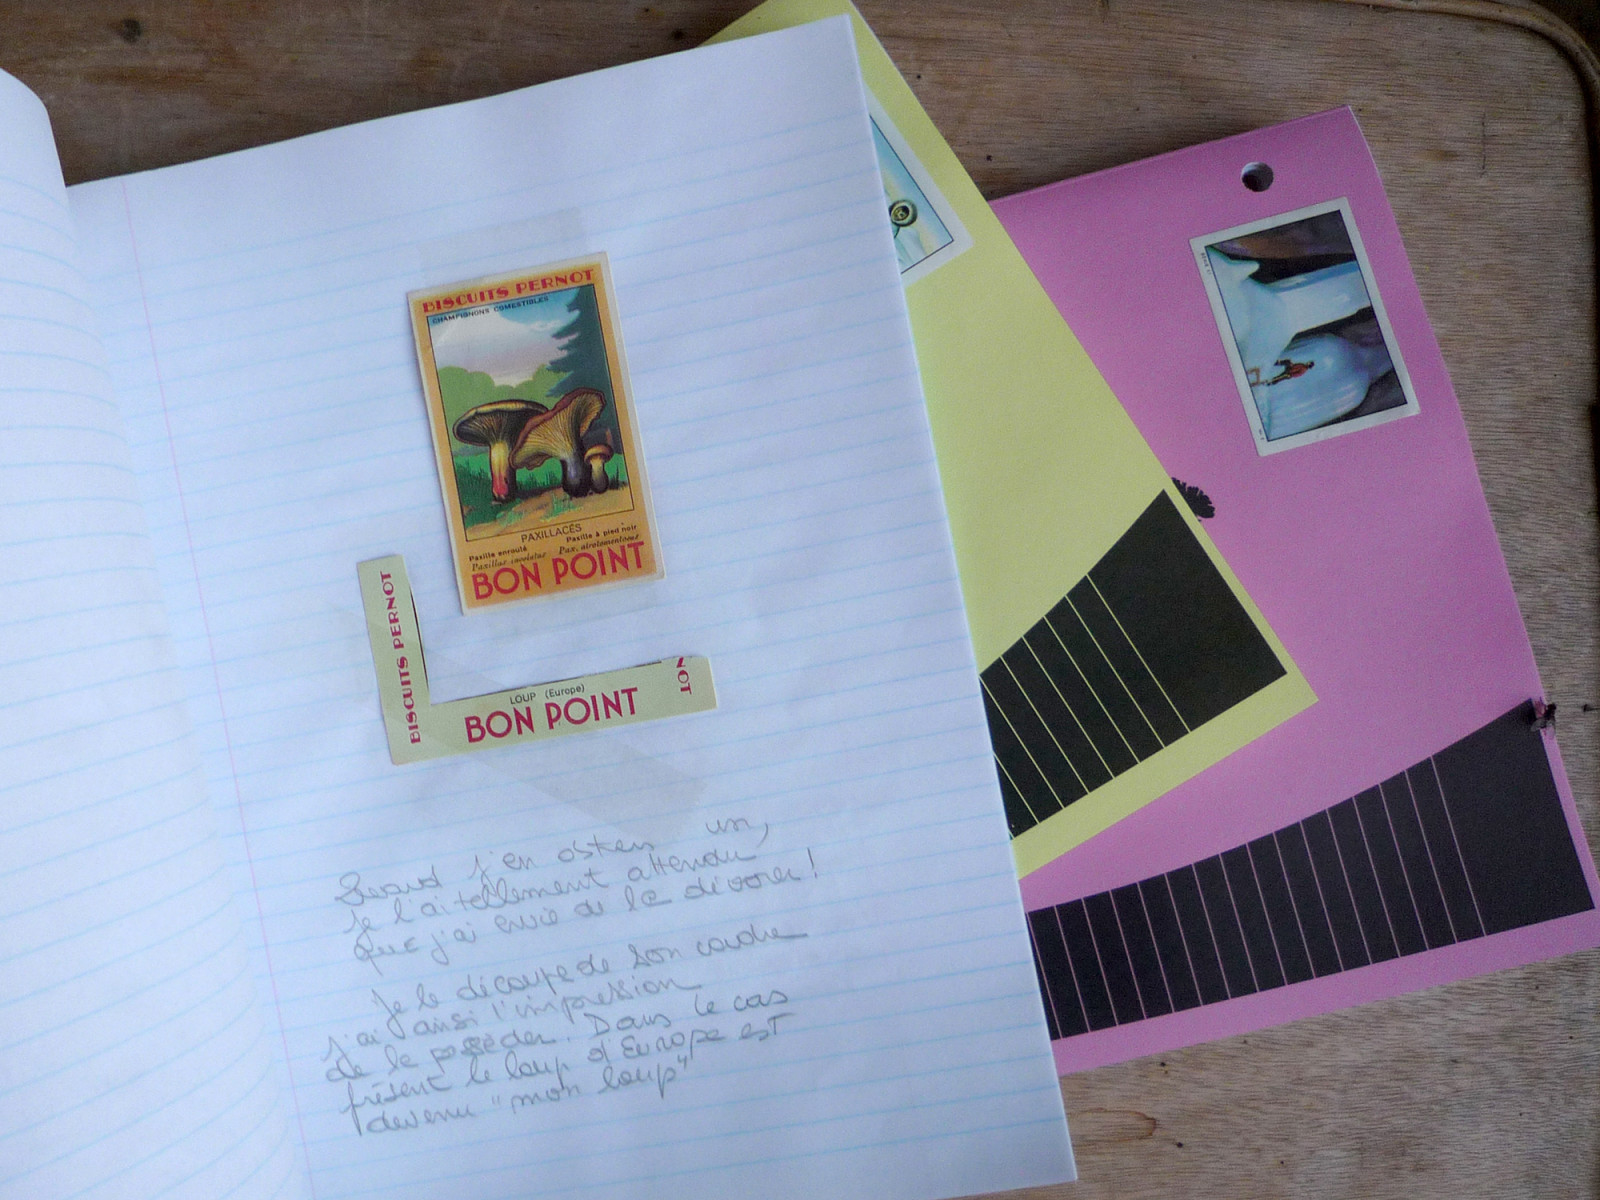 BISCUITS PERNOT
CHAMPIGNONS COMESTIBLES
PAXILLACÉS
Paxille enroulé Paxille à pied noir
Paxillus involutus Pax. atrotomentosus
BON POINT
BISCUITS PERNOT
LOUP (Europe)
BON POINT
NOT
Quand j'en obtiens un,
je l'ai tellement attendu,
que j'ai envie de le dévorer!
Je le découpe de son cadre
j'ai ainsi l'impression
de le posséder. Dans le cas
présent le loup d'Europe est
devenu "mon loup"